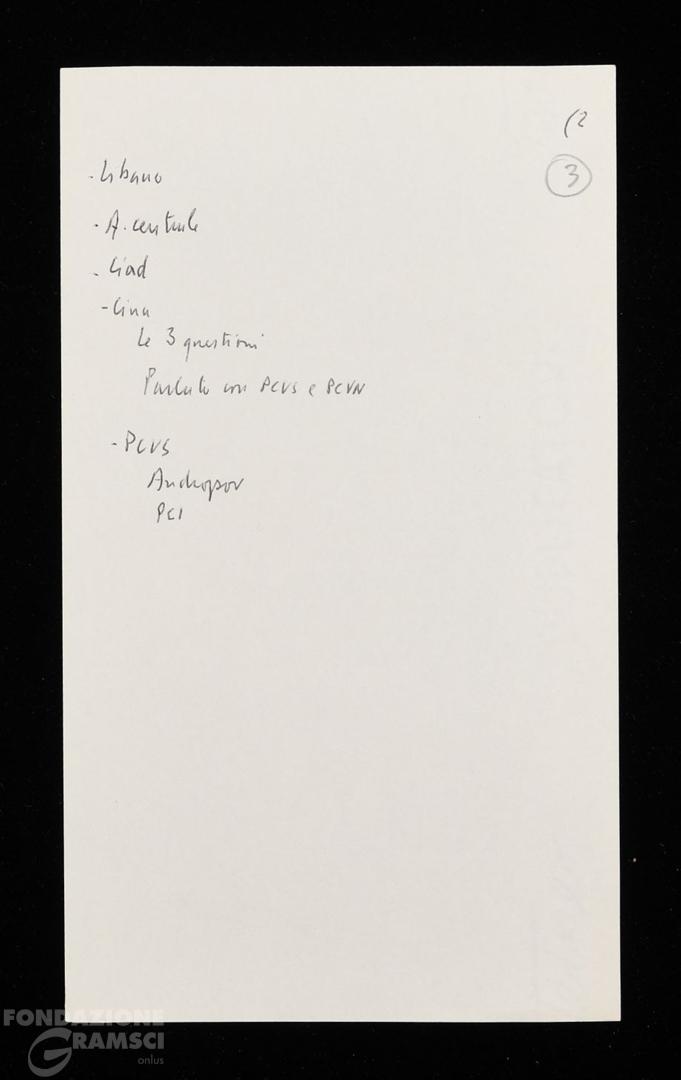 (2
3
- Libano
- A. centrale
- Ciad
- Cina
Le 3 questioni
Parlato con PCUS e PCVN
- PCUS
Andropov
PCI
FONDAZIONE
GRAMSCI
onlus